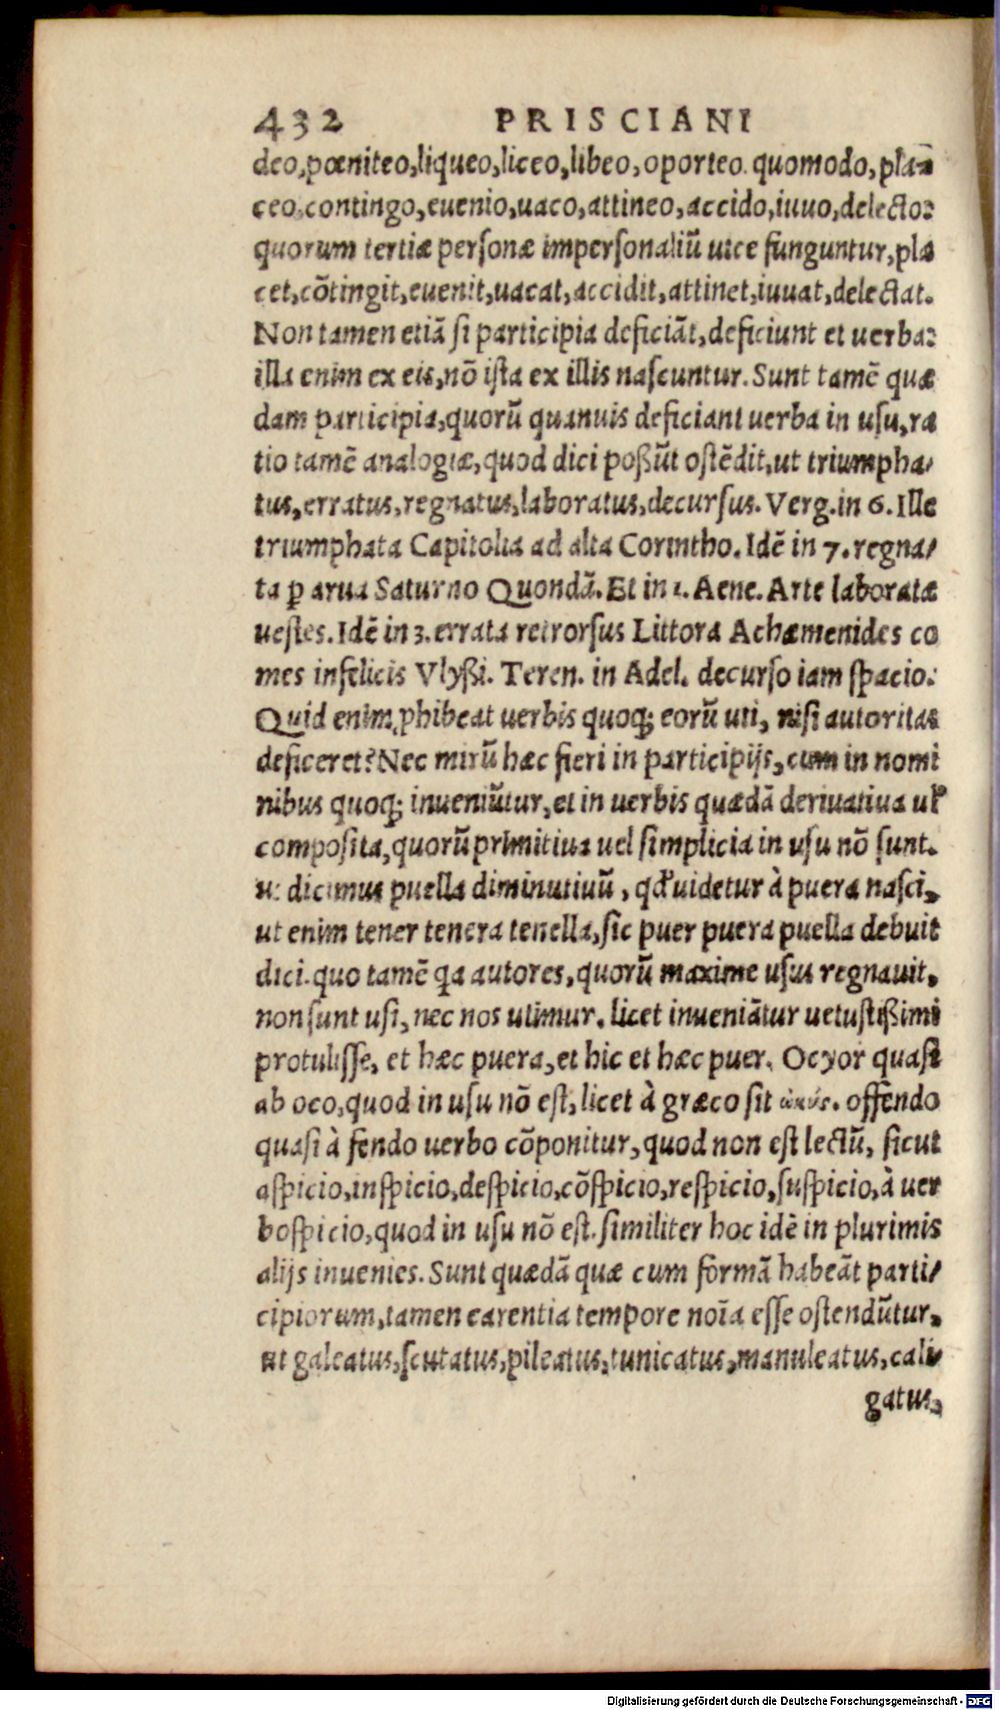 432 PRISCIANI
deo,pœniteo,liqueo,liceo,libeo,oporteo. quomodo,pla-
ceo,contingo,euenio,uaco,attineo,accido,iuuo,delecto:
quorum tertiæ personæ impersonaliū uice funguntur,pla
cet,cōtingit,euenit,uacat,accidit,attinet,iuuat,delectat.
Non tamen etiā si participia deficiāt,deficiunt et uerba:
illa enim ex eis,nō ista ex illis nascuntur. Sunt tamē quæ
dam participia,quorū quanuis deficiant uerba in usu,ra
tio tamē analogiæ,quod dici poßūt ostēdit,ut triumpha/
tus,erratus,regnatus,laboratus,decursus. Verg.in 6. Ille
triumphata Capitolia ad alta Corintho. Idē in 7. regna/
ta ꝑ arua Saturno Quondā. Et in 1. Aene. Arte laboratæ
uestes. Idē in 3. errata retrorsus Littora Achæmenides co
mes infelicis Vlyßi. Teren. in Adel. decurso iam spacio:
Quid enim ꝓhibeat uerbis quoqꝫ eorū uti, nisi autoritas
deficeret? Nec mirū hæc fieri in participijs,cum in nomi
nibus quoqꝫ inueniūtur,et in uerbis quædā deriuatiua ul̓
composita,quorū primitiua uel simplicia in usu nō sunt.
ut dicimus puella diminutiuū, qd̓ uidetur à puera nasci,
ut enim tener tenera tenella,sic puer puera puella debuit
dici. quo tamē qa autores,quorū maxime usus regnauit,
non sunt usi, nec nos utimur. licet inueniātur uetustißimi
protulisse, et hæc puera,et hic et hæc puer. Ocyor quasi
ab oco,quod in usu nō est,licet à græco sit ὠκύς. offendo
quasi à fendo uerbo cōponitur,quod non est lectū, sicut
aspicio,inspicio,despicio,cōspicio,respicio,suspicio,à uer
bo spicio,quod in usu nō est. similiter hoc idē in plurimis
alijs inuenies. Sunt quædā quæ cum formā habeāt parti/
cipiorum,tamen carentia tempore noīa esse ostendūtur,
ut galeatus,scutatus,pileatus,tunicatus,manuleatus,cali
gatus,
Digitalisierung gefördert durch die Deutsche Forschungsgemeinschaft - DFG